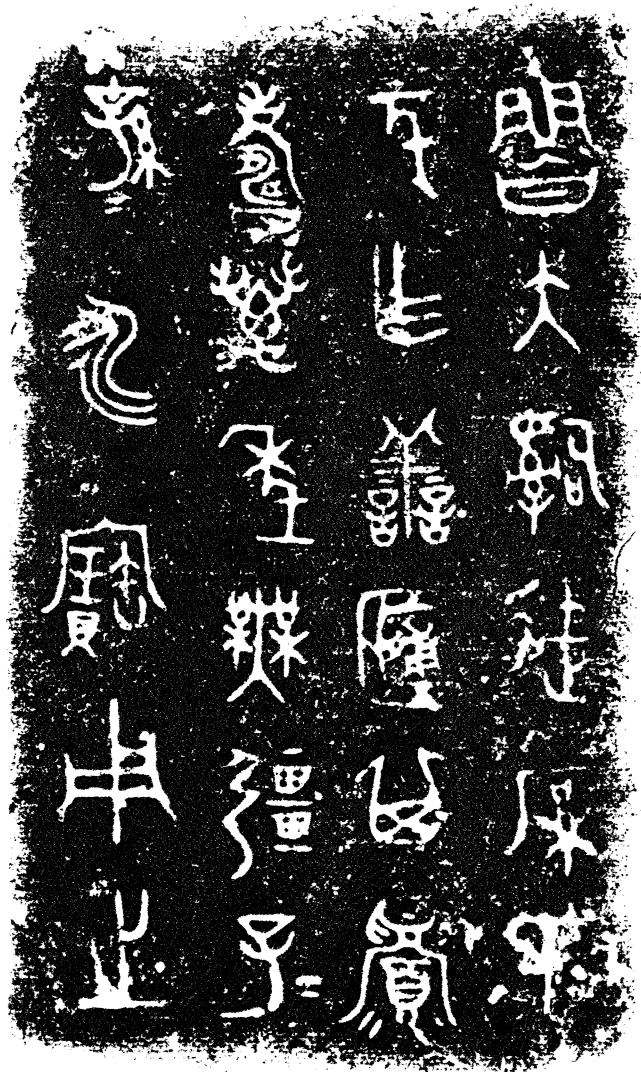 魯大司徒厚氏
元乍譱簠其眉
壽萬年無疆子=
孫=永寶用之